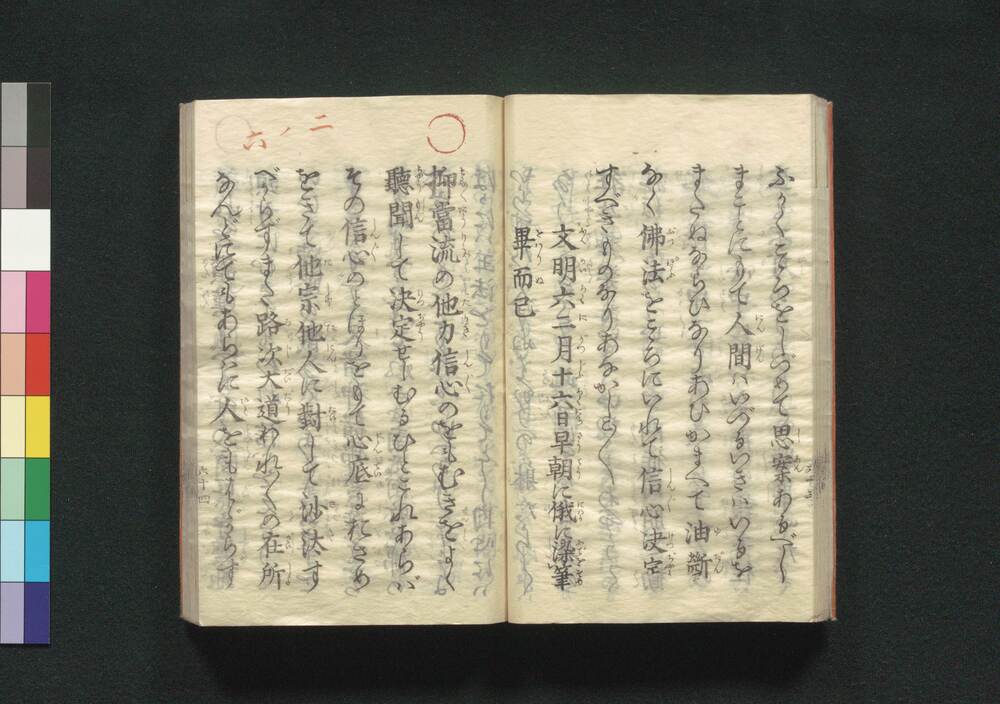 ふかくこゝろをしづめて思案あるべし
まことにもて人間ハいづるいきハいるを
またぬならひなりあひかまへて油斷
なく佛法をこゝろにいれて信心決定
すべきものなりあなかしこ〱
文明六二月十六日早朝に俄に染筆
畢而已
二ノ六
抑當流の他力信心のをもむきをよく
聽聞して決定せしむるひとこれあらバ
その信心のとほりをもて心底におさめ
をきて他宗他人に對して沙汰す
べからずまた路次大道われ〱の在所
なんどにてもあらはに人をもはゞからず
六十四